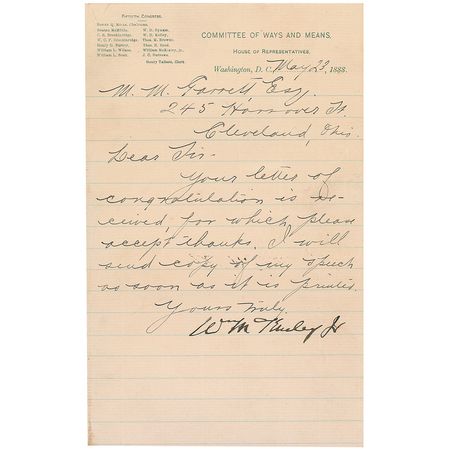 Fiftieth Congress.
Roger Q. Mills, Chairman.
Benton McMillin. W. D. Bynum.
C. R. Breckinridge. W. D. Kelley.
W. C. P. Breckinridge. Thos. M. Browne.
Henry G. Turner. Thos. B. Reed.
William L. Wilson. William McKinley, Jr.
William L. Scott. J. C. Burrows.
Henry Talbott, Clerk.
COMMITTEE OF WAYS AND MEANS,
House of Representatives,
Washington, D. C., May 23, 1888.
M. M. Garrett Esq.
245 Hanover St.
Cleveland, Ohio.
Dear Sir-
Your letter of
congratulation is re-
ceived, for which please
accept thanks. I will
send copy of my speech
as soon as it is printed.
Yours truly,
Wm McKinley Jr